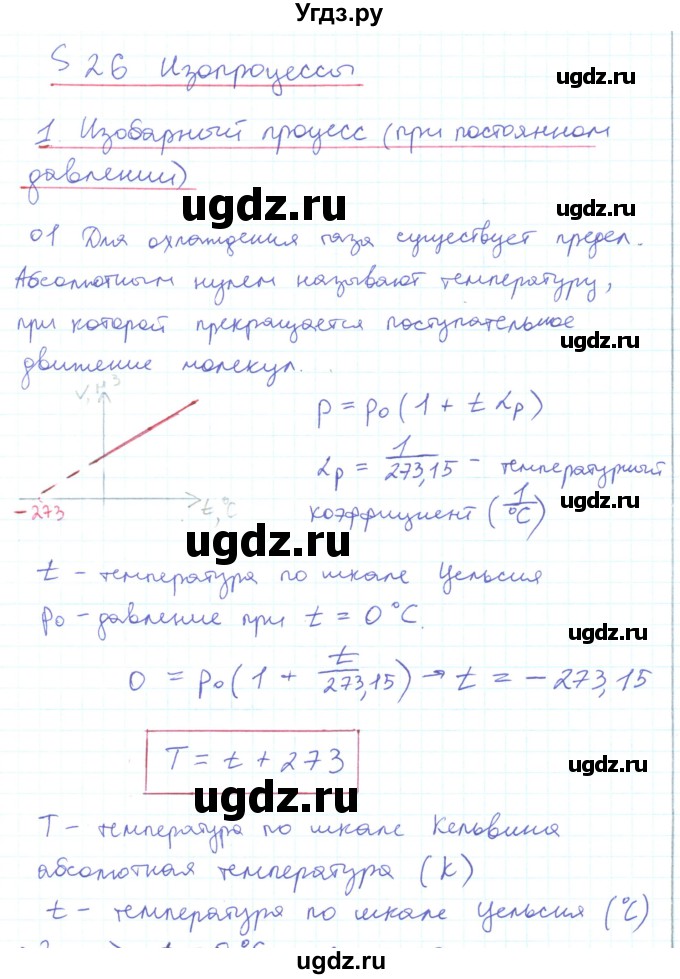 Угдз.ру
§ 26 Изопроцессы
ugdz.ru
1. Изобарный процесс (при постоянном
давлении)
ugdz.ru
ugdz.ru
01 Для охлаждения газа существует предел.
Абсолютным нулем называют температуру,
при которой прекращается поступательное
ugdz.ru
движение молекул.
V, м³
p = p₀(1 + t αp)
αp = 1/273,15 - температурный
-273
t, °C
коэффициент (1/°C)
ugdz.ru
ugdz.ru
t - температура по шкале Цельсия
p₀ - давление при t = 0°C.
ugdz.ru
0 = p₀(1 + t/273,15) → t = - 273,15
T = t + 273
ugdz.ru
ugdz.ru
T - температура по шкале Кельвина
абсолютная температура (К)
t - температура по шкале Цельсия (°C)
ugdz.ru